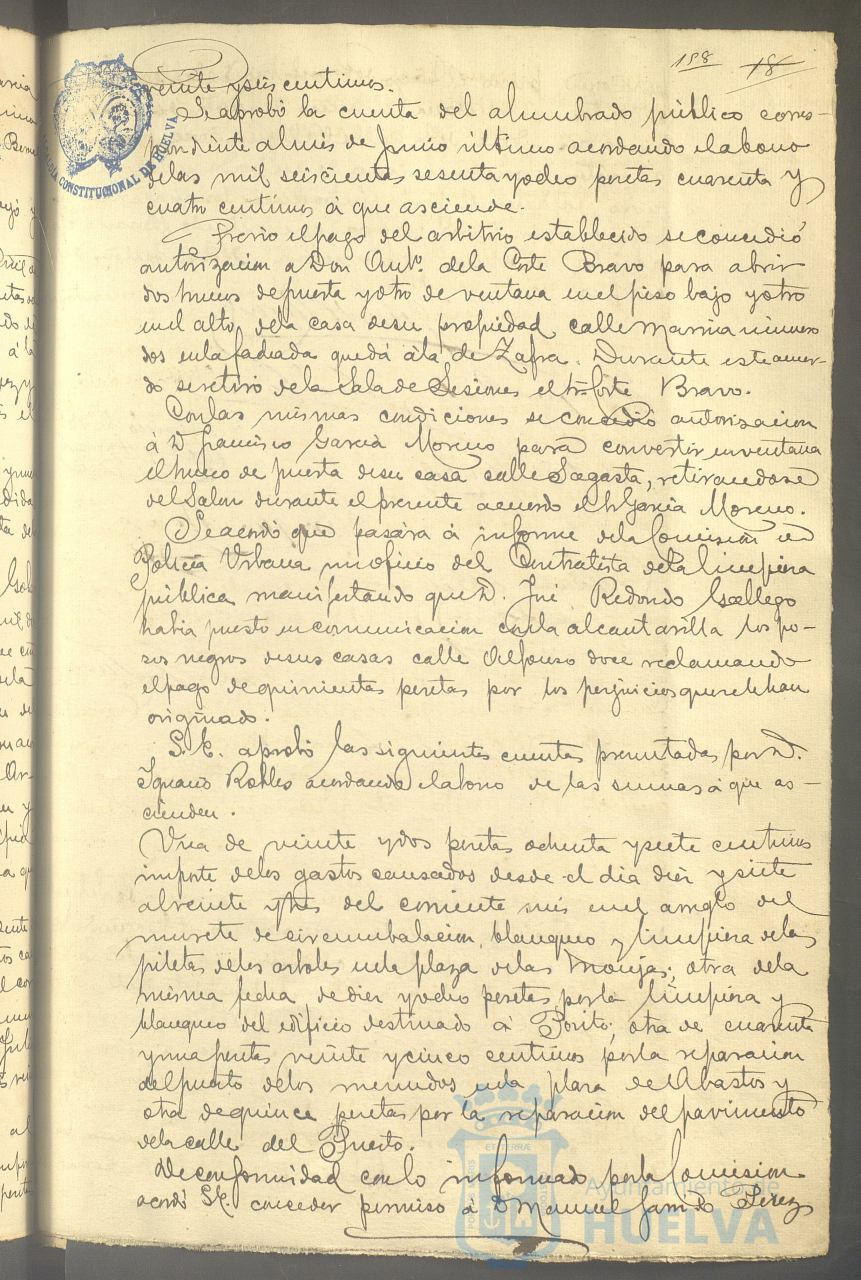 158 18
veinte y seis centimos.
Se aprobó la cuenta del alumbrado público corres-
pondiente al mes de Junio último acordando el abono
de las mil seiscientas sesenta y ocho pesetas cuarenta y
cuatro centimos á que asciende.
Previo el pago del arbitrio establecido se concedió
autorizacion a Don Antº. de la Corte Bravo para abrir
dos huecos de puerta y otro de ventana en el piso bajo y otro
en el alto, de la casa de su propiedad calle Marina numero
dos en la fachada que dá á la de Zafra. Durante este acuer-
do se retiró de la Sala de Sesiones el Sr. Corte Bravo.
Con las mismas condiciones se concedió autorizacion
á D. Francisco Garcia Moreno para convertir en ventana
el hueco de puerta de su casa calle Sagasta, retirandose
del Salon durante el presente acuerdo el Sr Garcia Moreno.
Se acordó que pasára á informe de la Comision de
Policia Urbana un oficio del Contratista de la limpieza
pública manifestando que D. José Redondo Gallego
habia puesto en comunicacion con la alcantarilla los po-
sos negros de sus casas calle Alfonso doce reclamando
el pago de quinientas pesetas por los perjuicios que se le han
originado.
S. E. aprobó las siguientes cuentas presentadas por D.
Ignacio Robles acordando el abono de las sumas á que as-
cienden.
Una de veinte y dos pesetas ochenta y siete centimos
importe de los gastos causados desde el dia diez y siete
al veinte y tres del corriente mes en el arreglo del
murete de circumbalacion, blanqueo y limpieza de las
piletas de los arboles en la plaza de las Monjas; otra de la
misma fecha de diez y ocho pesetas por la limpieza y
blanqueo del edificio destinado á Posito; otra de cuarenta
y una pesetas veinte y cinco centimos por la reparacion
del puesto de los menudos en la plaza de Abastos y
otra de quince pesetas por la reparacion del pavimento
de la calle del Puerto.
De conformidad con lo informado por la Comision
acordó S.E. conceder permiso á D Manuel Garrido Perez
CONSTITUCIONAL DE HUELVA
Ayuntamiento de
HUELVA